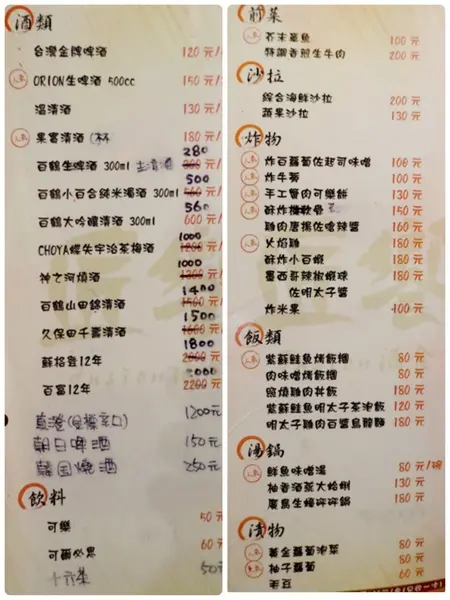 酒類
台灣金牌啤酒 120元/
人氣 ORION生啤酒 500cc 150元/
溫清酒 130元/
人氣 果蜜清酒 (杯 180元/
百鶴生啤酒 300ml 生清酒 280
百鶴小百合純米濁酒 300ml 500
百鶴大吟釀清酒 300ml 560 600元/
CHOYA蝶矢宇治茶梅酒 1000 1200
神之河燒酒 1000 1300元
百鶴山田錦清酒 1400 1500元
久保田千壽清酒 1500 1600元
蘇格登12年 1800 2000元
百富12年 2000 2200元
真澄(辛口) 1200元
朝日啤酒 150元
韓国燒酒 250元
飲料
可樂 50元
可爾必思 60元
50元
前菜
芥末章魚 100元
特調香煎生牛肉 200元
沙拉
綜合海鮮沙拉 200元
蔬果沙拉 130元
炸物
人氣 炸百蘿蔔佐起司味噌 100元
人氣 炸牛蒡 100元
人氣 手工蟹肉可樂餅 130元
人氣 酥炸雞軟骨 150元
雞肉唐揚佐嗆辣醬 160元
人氣 火焰雞 180元
酥炸小百蝦 180元
墨西哥辣椒蝦球 180元
佐明太子醬
炸米果 100元
飯類
人氣 紫蘇鮭魚烤飯糰 80元
肉味噌烤飯糰 80元
照燒雞肉丼飯 180元
紫蘇鮭魚明太子茶泡飯 120元
明太子雞肉百醬烏龍麵 180元
湯鍋
人氣 鮮魚味噌湯 80元/碗
柚香酒蒸大蛤蜊 130元
廣島生蠔沵沵鍋 180元
漬物
人氣 黃金蘿蔔泡菜 80元
人氣 柚子蘿蔔 60元
毛豆